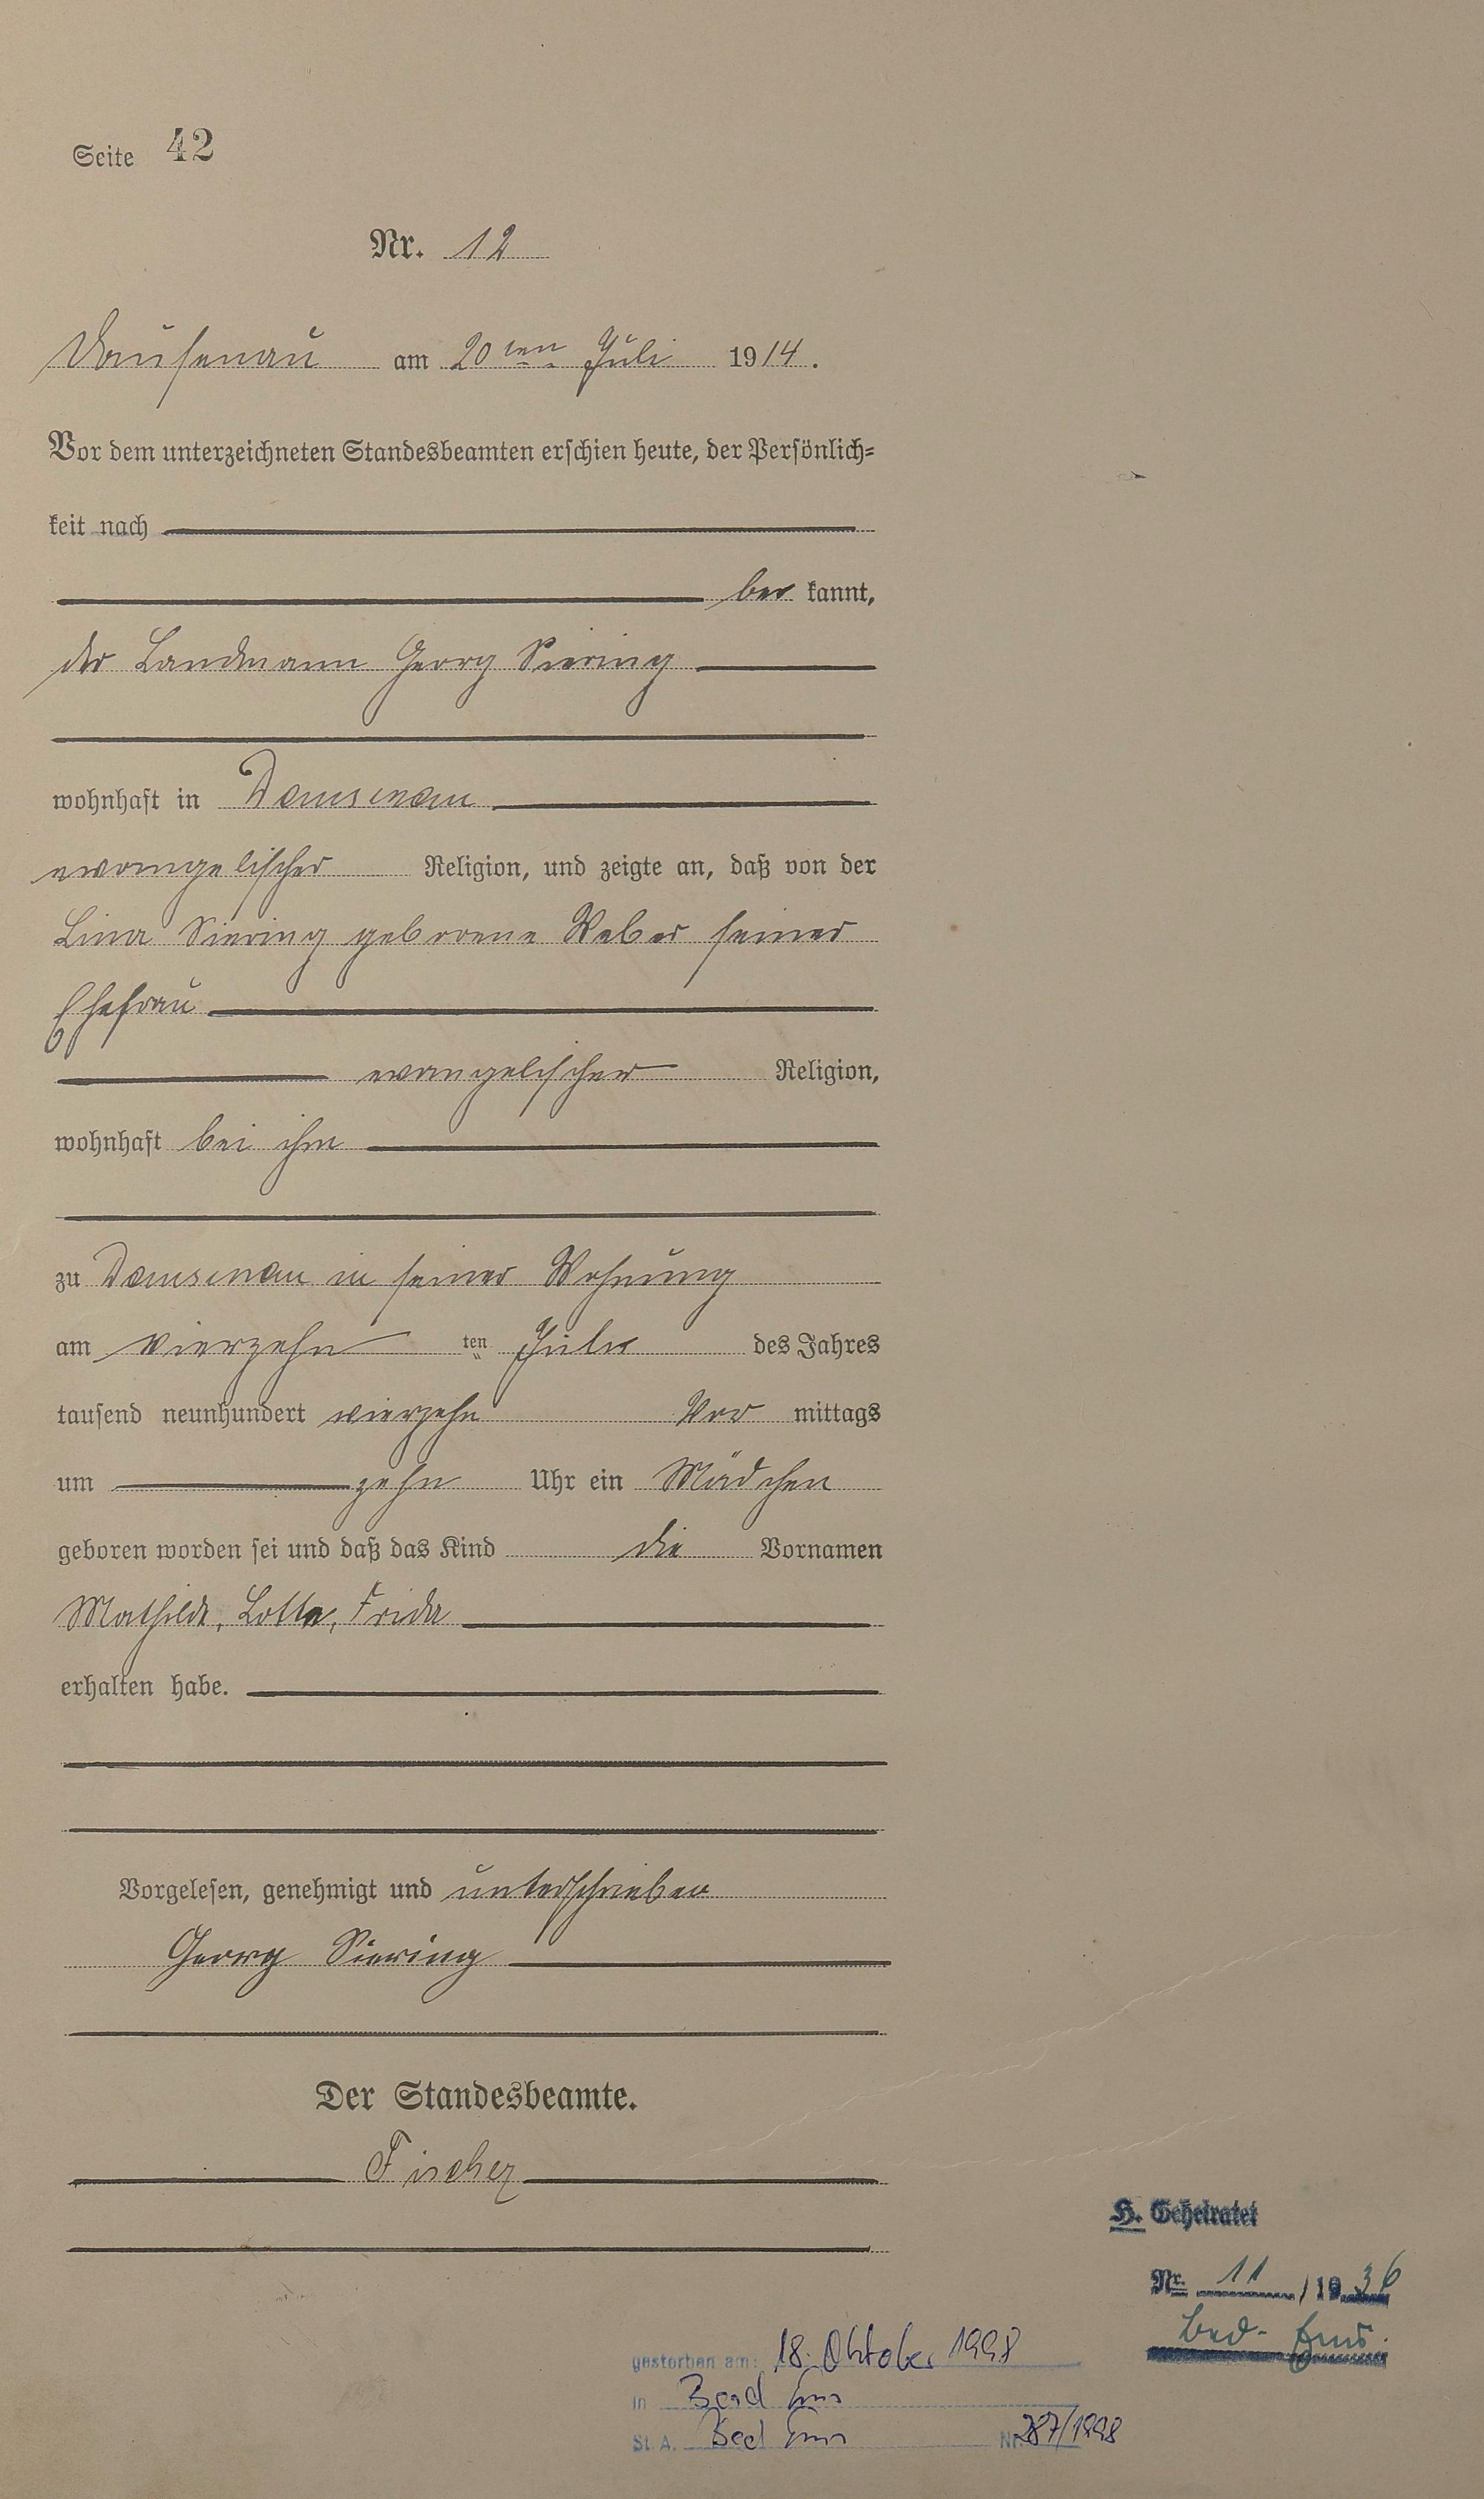 Seite 42
Nr. 12
Dausenau am 20ten Juli 1914.
Vor dem unterzeichneten Standesbeamten erschien heute, der Persönlich-
keit nach
be kannt,
der Landmann Georg Siering
wohnhaft in Dausenau
evangelischer Religion, und zeigte an, daß von der
Lina Siering geborene Weber seiner
Ehefrau
evangelischer Religion,
wohnhaft bei ihm
zu Dausenau in seiner Wohnung
am vierzehn ten Juli des Jahres
tausend neunhundert vierzehn Vor mittags
um zehn Uhr ein Mädchen
geboren worden sei und daß das Kind die Vornamen
Mathilde, Lotte, Frida
erhalten habe.
Vorgelesen, genehmigt und unterschrieben
Georg Siering
Der Standesbeamte.
Fischer
H. Geheiratet
Nr. 11 / 1936
Bad-Ems.
gestorben am: 18. Oktober 1998
in Bad Ems
St. A. Bad Ems Nr. 287/1998